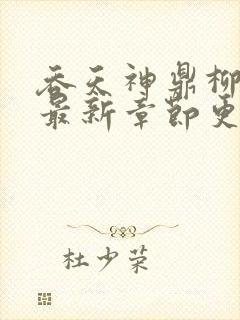 吞天神鼎柳
最新章节更
杜少荣